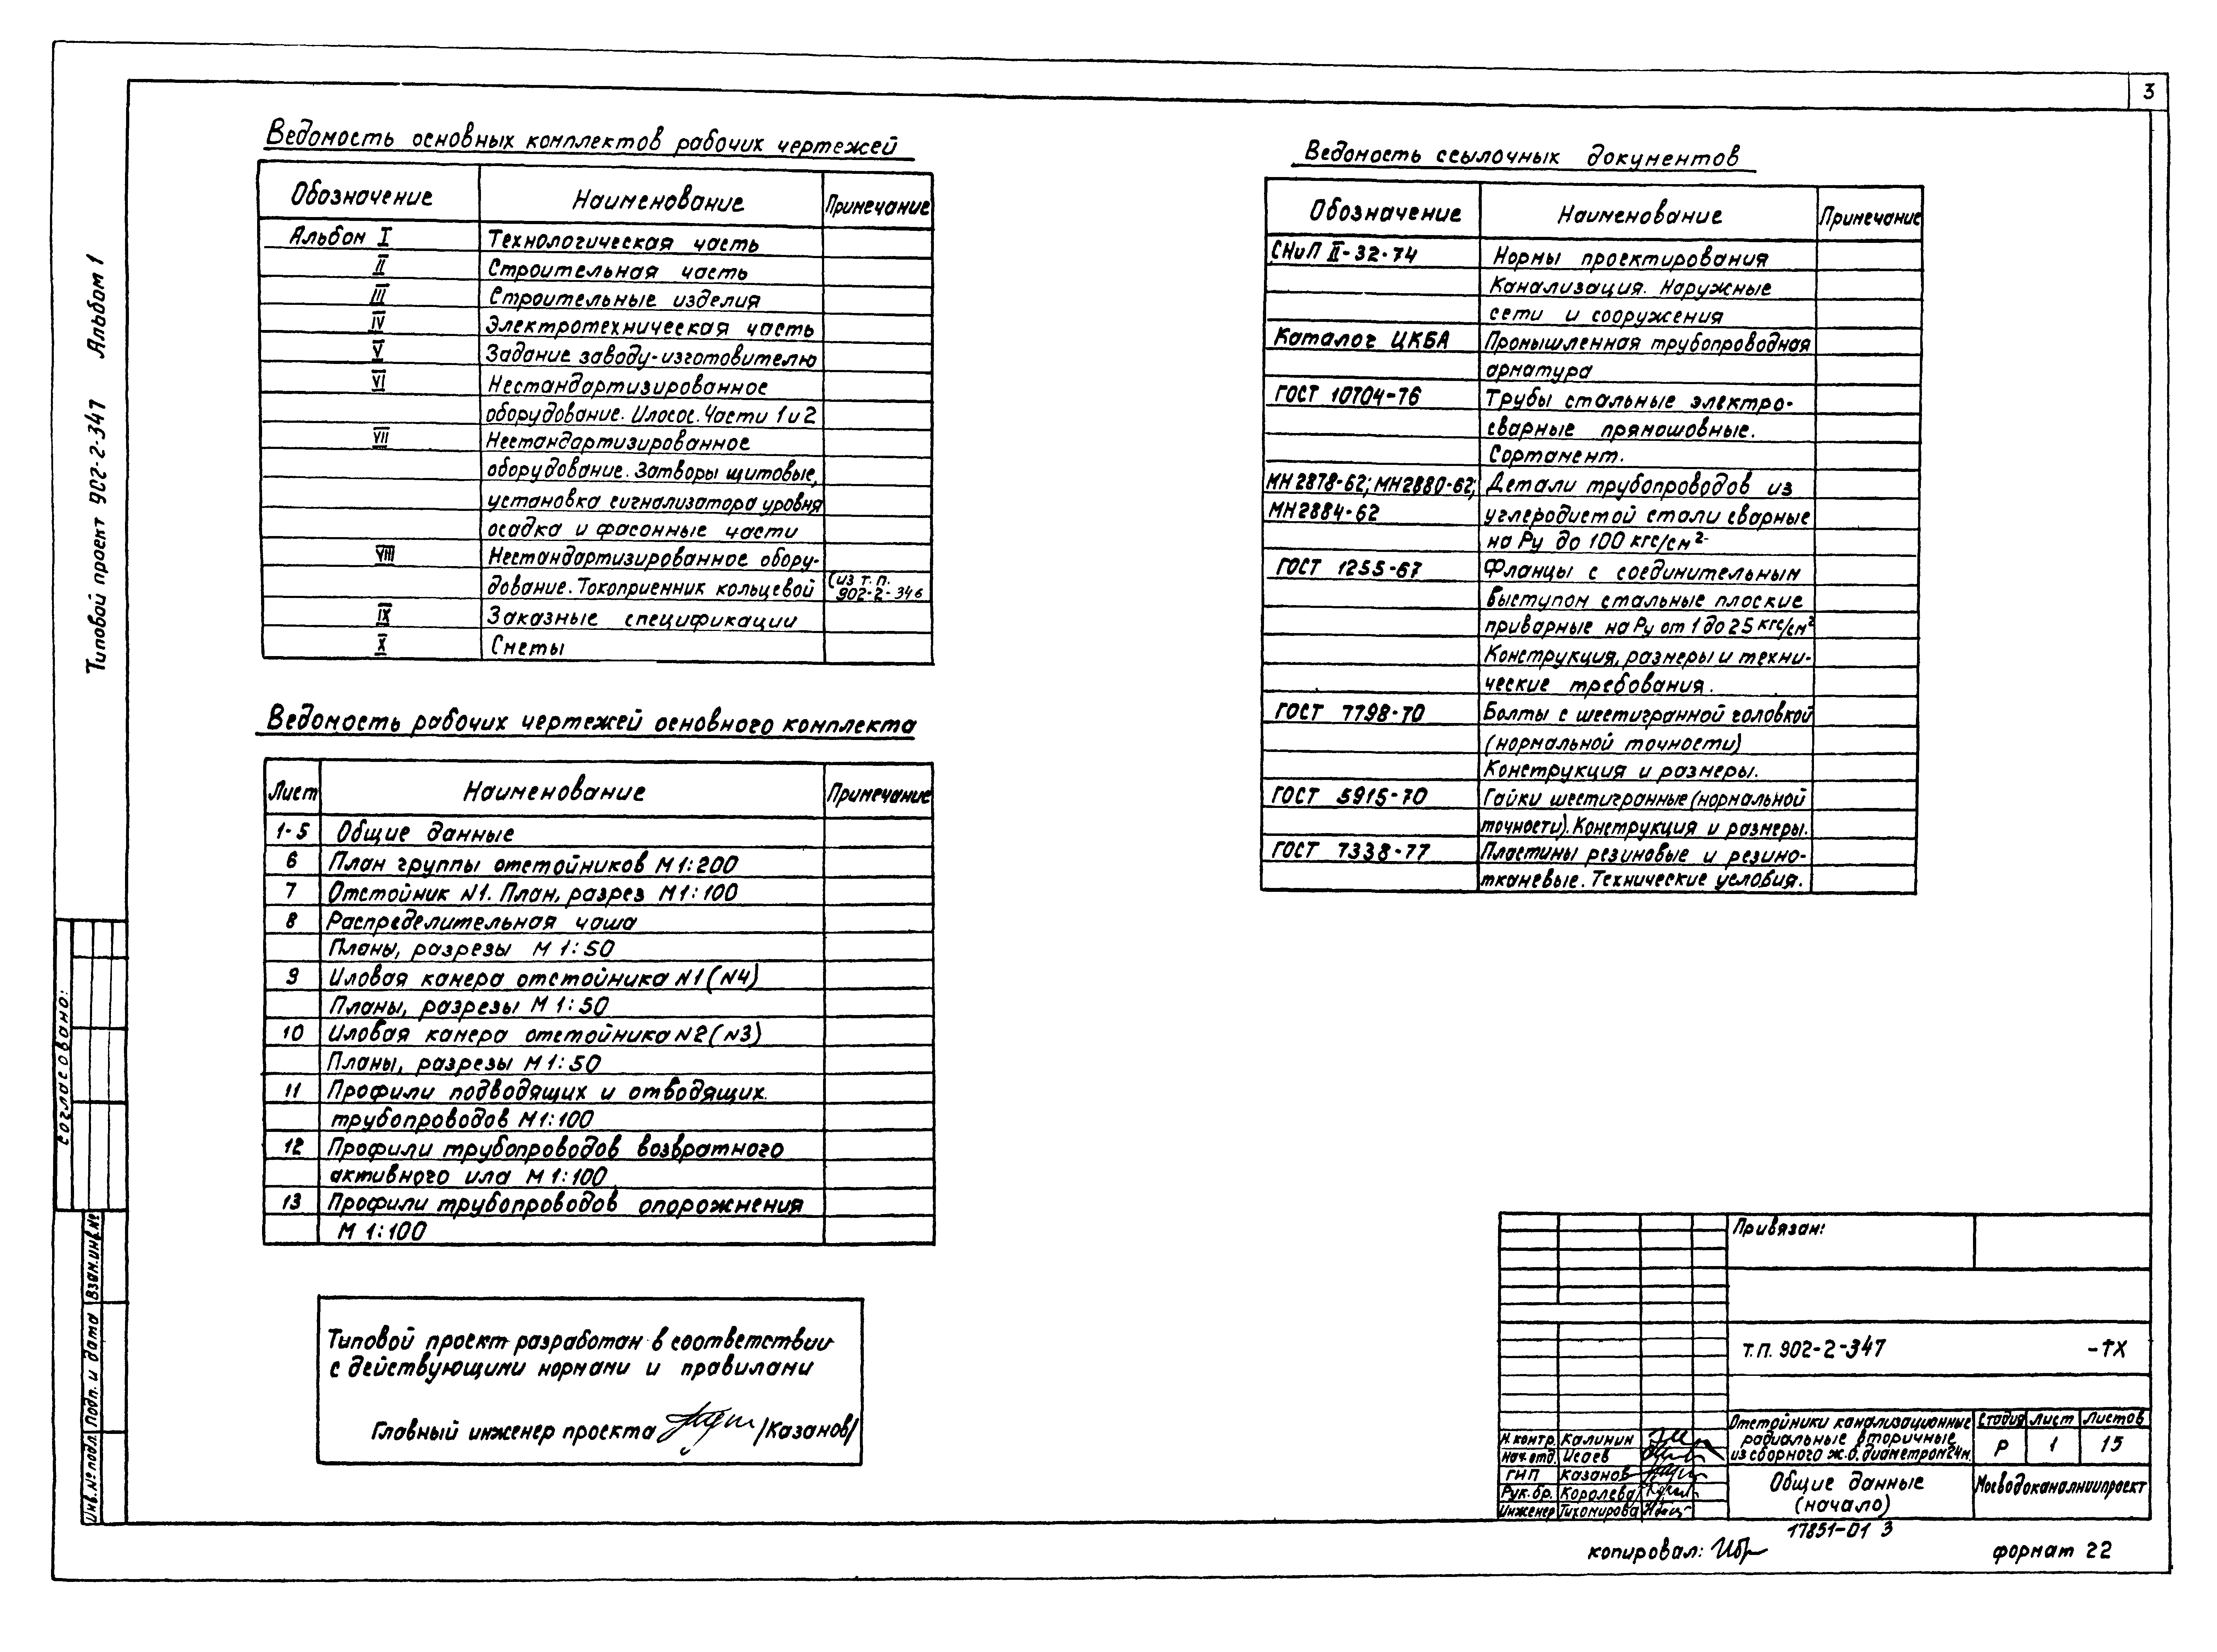 3
Типовой проект 902-2-347 Альбом 1
Ведомость основных комплектов рабочих чертежей
Обозначение Наименование Примечание
Альбом I Технологическая часть
II Строительная часть
III Строительные изделия
IV Электротехническая часть
V Задание заводу-изготовителю
VI Нестандартизированное
оборудование. Илосос. Части 1 и 2
VII Нестандартизированное
оборудование. Затворы щитовые,
установка сигнализатора уровня
осадка и фасонные части
VIII Нестандартизированное обору-
дование. Токоприемник кольцевой (из т.п. 902-2-346
IX Заказные спецификации
X Сметы
Ведомость рабочих чертежей основного комплекта
Лист Наименование Примечание
1-5 Общие данные
6 План группы отстойников М 1:200
7 Отстойник N1. План, разрез М 1:100
8 Распределительная чаша
Планы, разрезы М 1:50
9 Иловая камера отстойника N1 (N4)
Планы, разрезы М 1:50
10 Иловая камера отстойника N2 (N3)
Планы, разрезы М 1:50
11 Профили подводящих и отводящих
трубопроводов М 1:100
12 Профили трубопроводов возвратного
активного ила М 1:100
13 Профили трубопроводов опорожнения
М 1:100
Типовой проект разработан в соответствии
с действующими нормами и правилами
Главный инженер проекта /Казанов/
Ведомость ссылочных документов
Обозначение Наименование Примечание
СНиП II-32-74 Нормы проектирования
Канализация. Наружные
сети и сооружения
Каталог ЦКБА Промышленная трубопроводная
арматура
ГОСТ 10704-76 Трубы стальные электро-
сварные прямошовные.
Сортамент.
МН 2878-62; МН 2880-62; Детали трубопроводов из
МН 2884-62 углеродистой стали сварные
на Ру до 100 кгс/см²
ГОСТ 1255-67 Фланцы с соединительным
выступом стальные плоские
приварные на Ру от 1 до 25 кгс/см²
Конструкция, размеры и техни-
ческие требования.
ГОСТ 7798-70 Болты с шестигранной головкой
(нормальной точности)
Конструкция и размеры.
ГОСТ 5915-70 Гайки шестигранные (нормальной
точности). Конструкция и размеры.
ГОСТ 7338-77 Пластины резиновые и резино-
тканевые. Технические условия.
Согласовано:
Взам. инв. №
Подп. и дата
Инв. № подл.
Привязан:
Т.П. 902-2-347 -ТХ
Отстойники канализационные
радиальные вторичные
из сборного ж.б. диаметром 24 м.
Стадия Лист Листов
Р 1 15
Н. контр. Калинин
Нач. отд. Исаев
ГИП Казанов
Рук. бр. Королева
Инженер Тихомирова
Общие данные
(начало)
Мосводоканалниипроект
17851-01 3
копировал:
формат 22